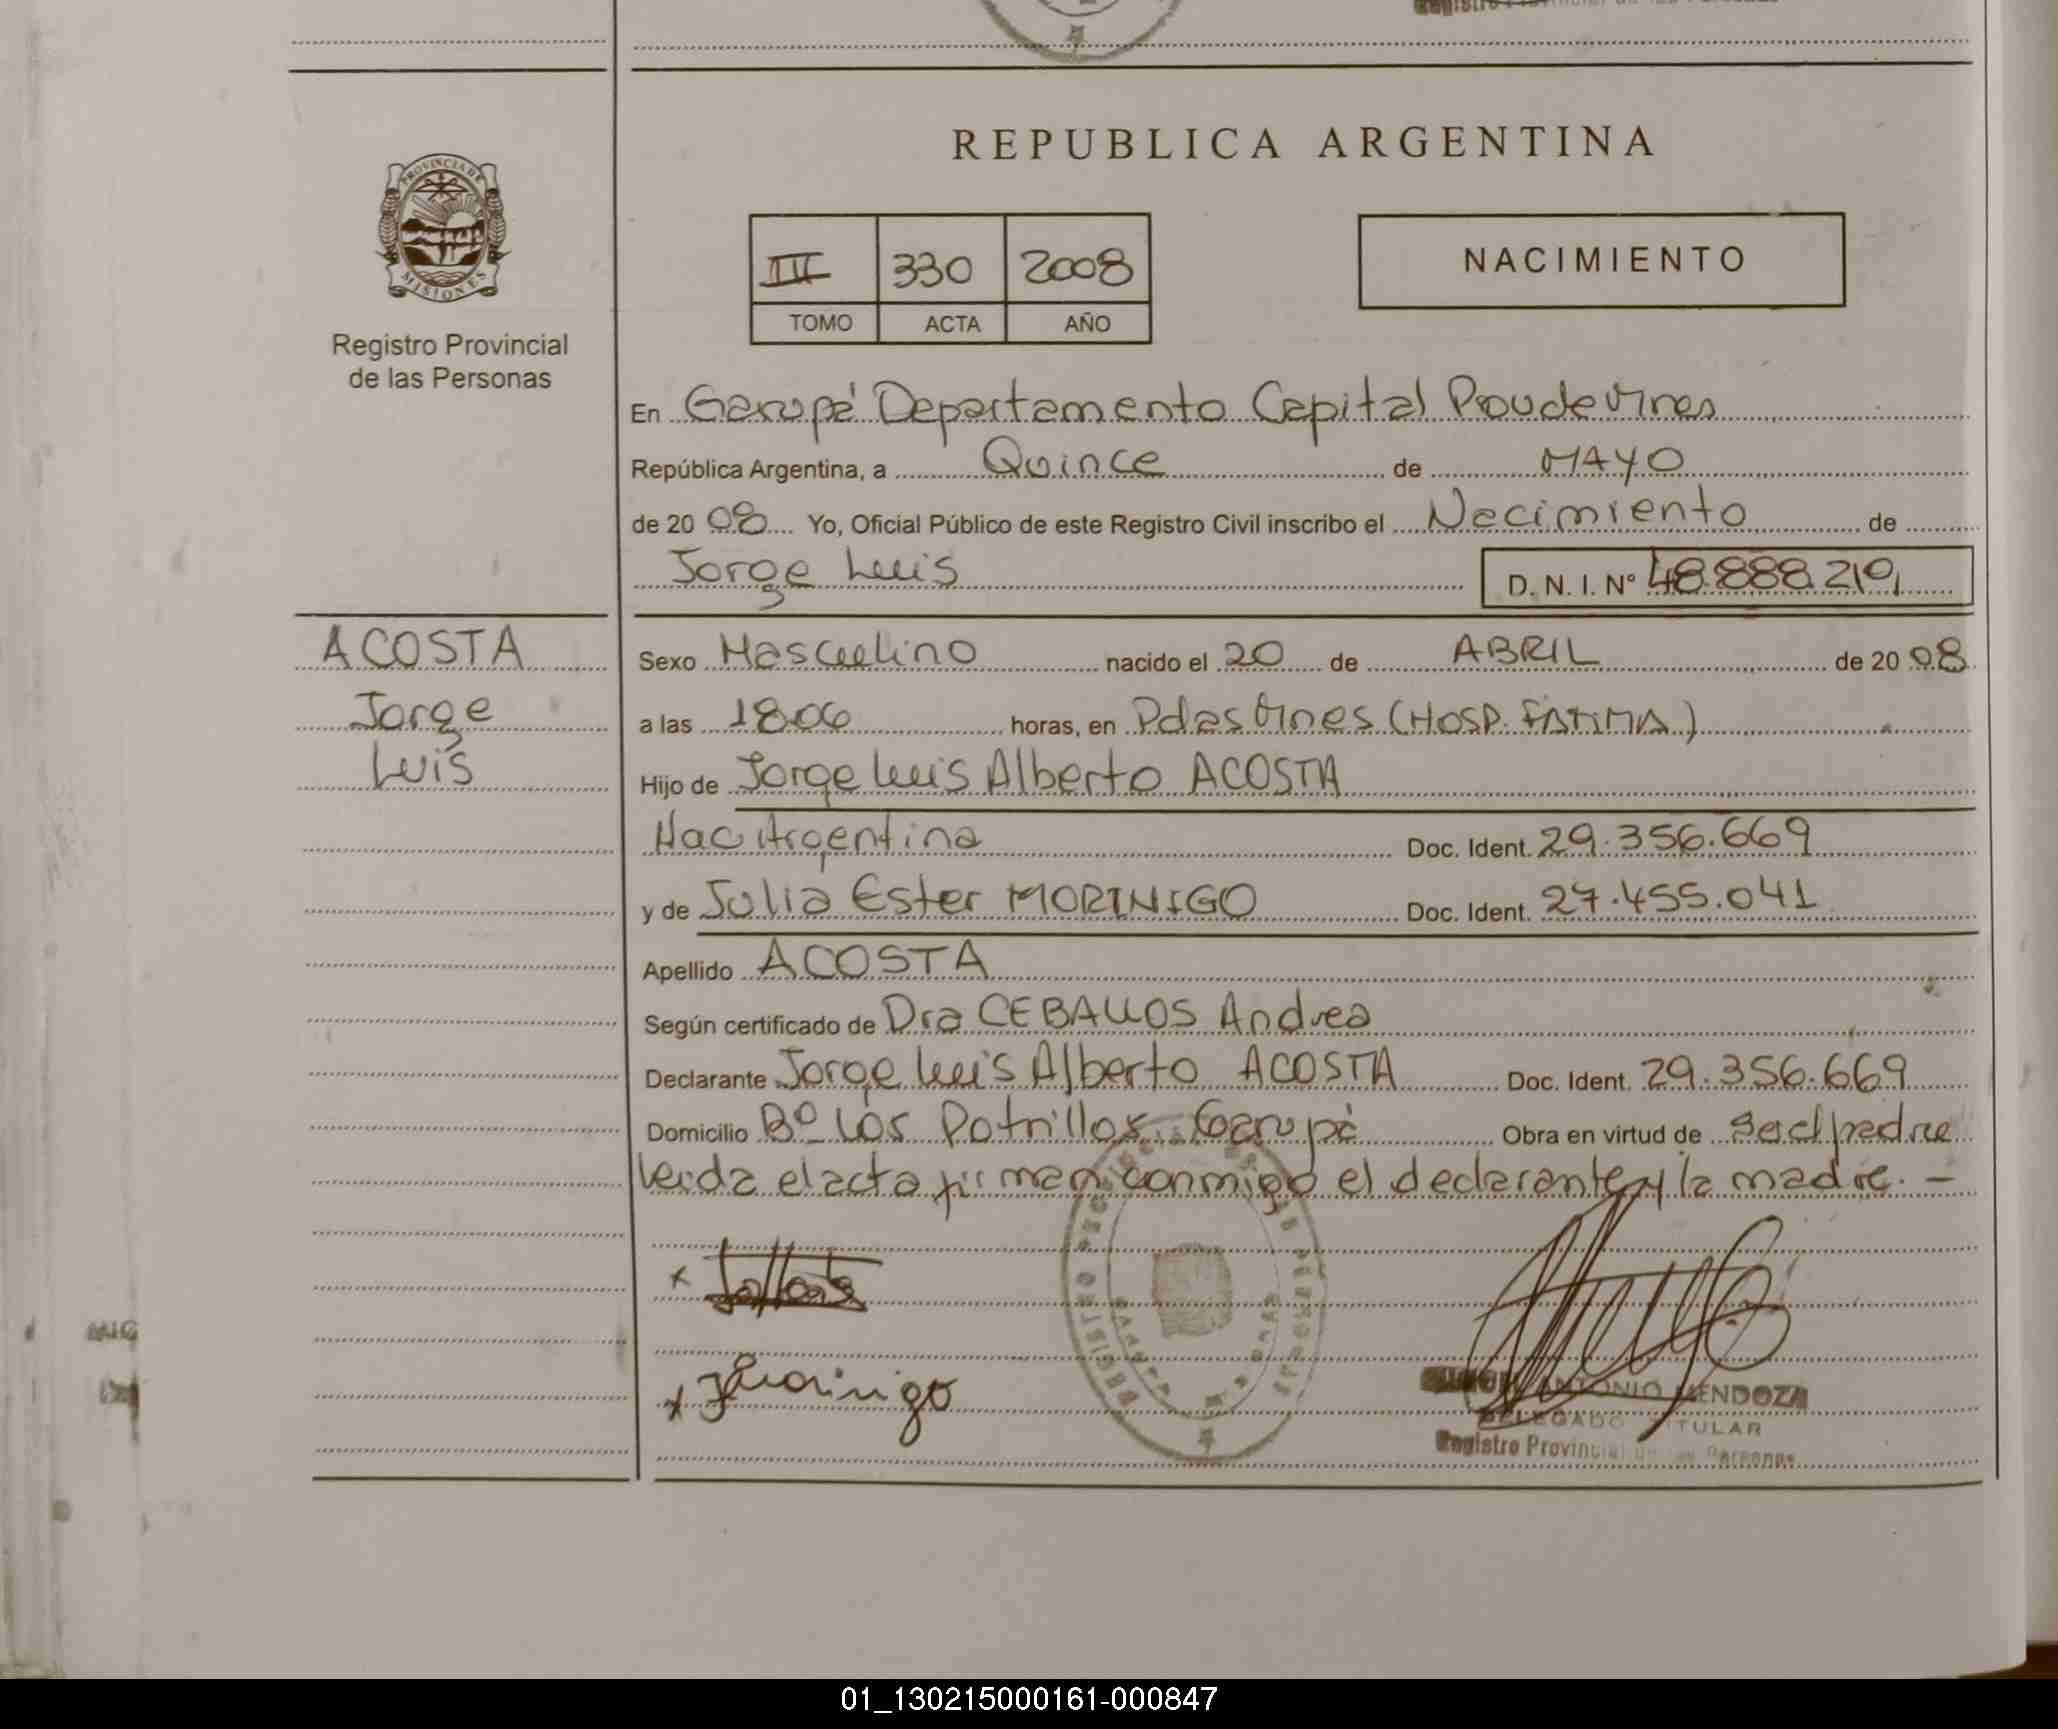 REPUBLICA ARGENTINA
PROVINCIA DE
MISIONES
Registro Provincial
de las Personas
III 330 2008
TOMO ACTA AÑO
NACIMIENTO
En Garupá Departamento Capital Pcia de Mnes
República Argentina, a Quince de MAYO
de 20 08 Yo, Oficial Público de este Registro Civil inscribo el Nacimiento de
Jorge Luis D. N. I. Nº 48.888.210
ACOSTA
Jorge
Luis
Sexo Masculino nacido el 20 de ABRIL de 20 08
a las 18.06 horas, en Pdas Mnes (HOSP. FATIMA)
Hijo de Jorge Luis Alberto ACOSTA
Nac Argentina Doc. Ident. 29.356.669
y de Julia Ester MORINIGO Doc. Ident. 27.455.041
Apellido ACOSTA
Según certificado de Dra CEBALLOS Andrea
Declarante Jorge Luis Alberto ACOSTA Doc. Ident. 29.356.669
Domicilio Bº Los Potrillos Garupá Obra en virtud de padre
Leida el acta firman conmigo el declarante y la madre. -
x
x JMorinigo
ANTONIO MENDOZA
DELEGADO TITULAR
Registro Provincial de las Personas
01_130215000161-000847